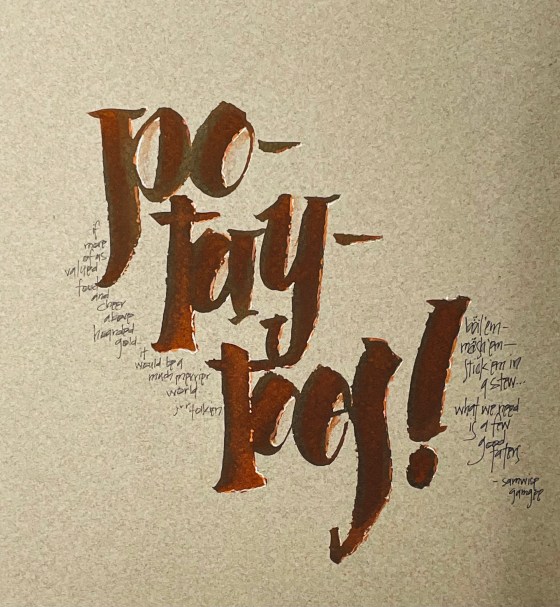 po-
tay-
toes!
if
more
of us
valued
food
and
cheer
above
hoarded
gold..
it
would be a
much merrier
world
tolkien
boil 'em-
mash 'em-
stick 'em in
a stew...
what we need
is a few
good
taters
- samwise
gamgee